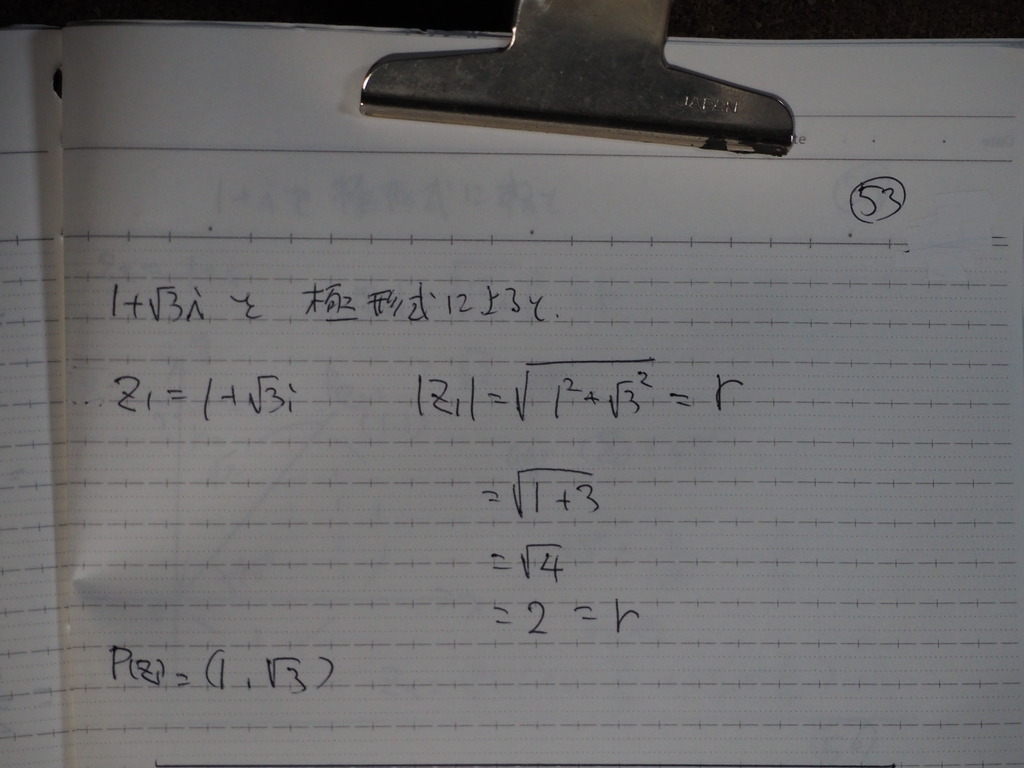 JAPAN
53
1+√3i を 極形式によると.
Z₁ = 1+√3i |Z₁| = √(1²+√3²) = r
= √(1+3)
= √4
= 2 = r
P(Z₁) = (1, √3)